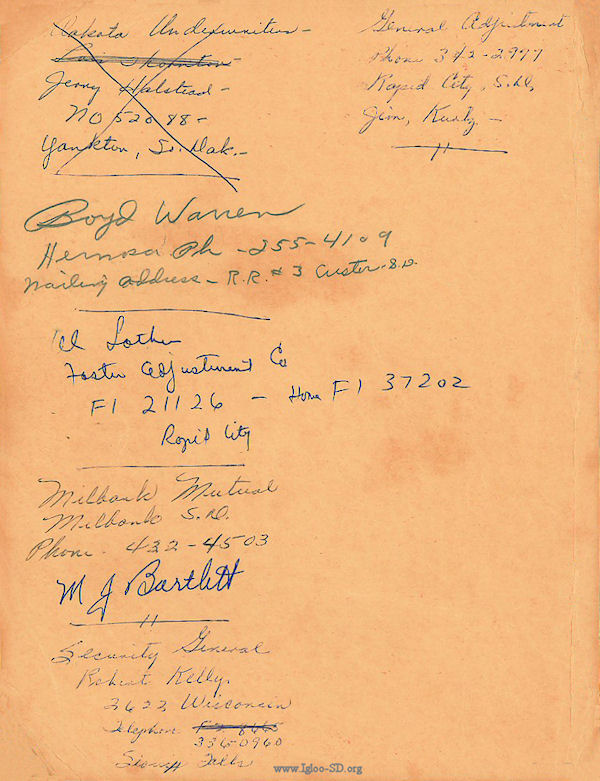 Dakota Underwriters -
Lois Thornton -
Jerry Halstead -
NO 52088 -
Yankton, So. Dak. -
General Adjustment
Phone 342-2977
Rapid City, S.D.
Jim, Kurtz -
Boyd Warren
Hermosa Ph - 255-4109
Mailing address - R.R. # 3 Custer S.D.
Foster Adjustment Co
FI 21126 - Home FI 37202
Rapid City
Milbank Mutual
Milbank S.D.
Phone. 432-4503
M J Bartlett
Security General
Robert Kelly.
2622 Wisconsin
Telephone
336-0960
Sioux Falls
www.Igloo-SD.org